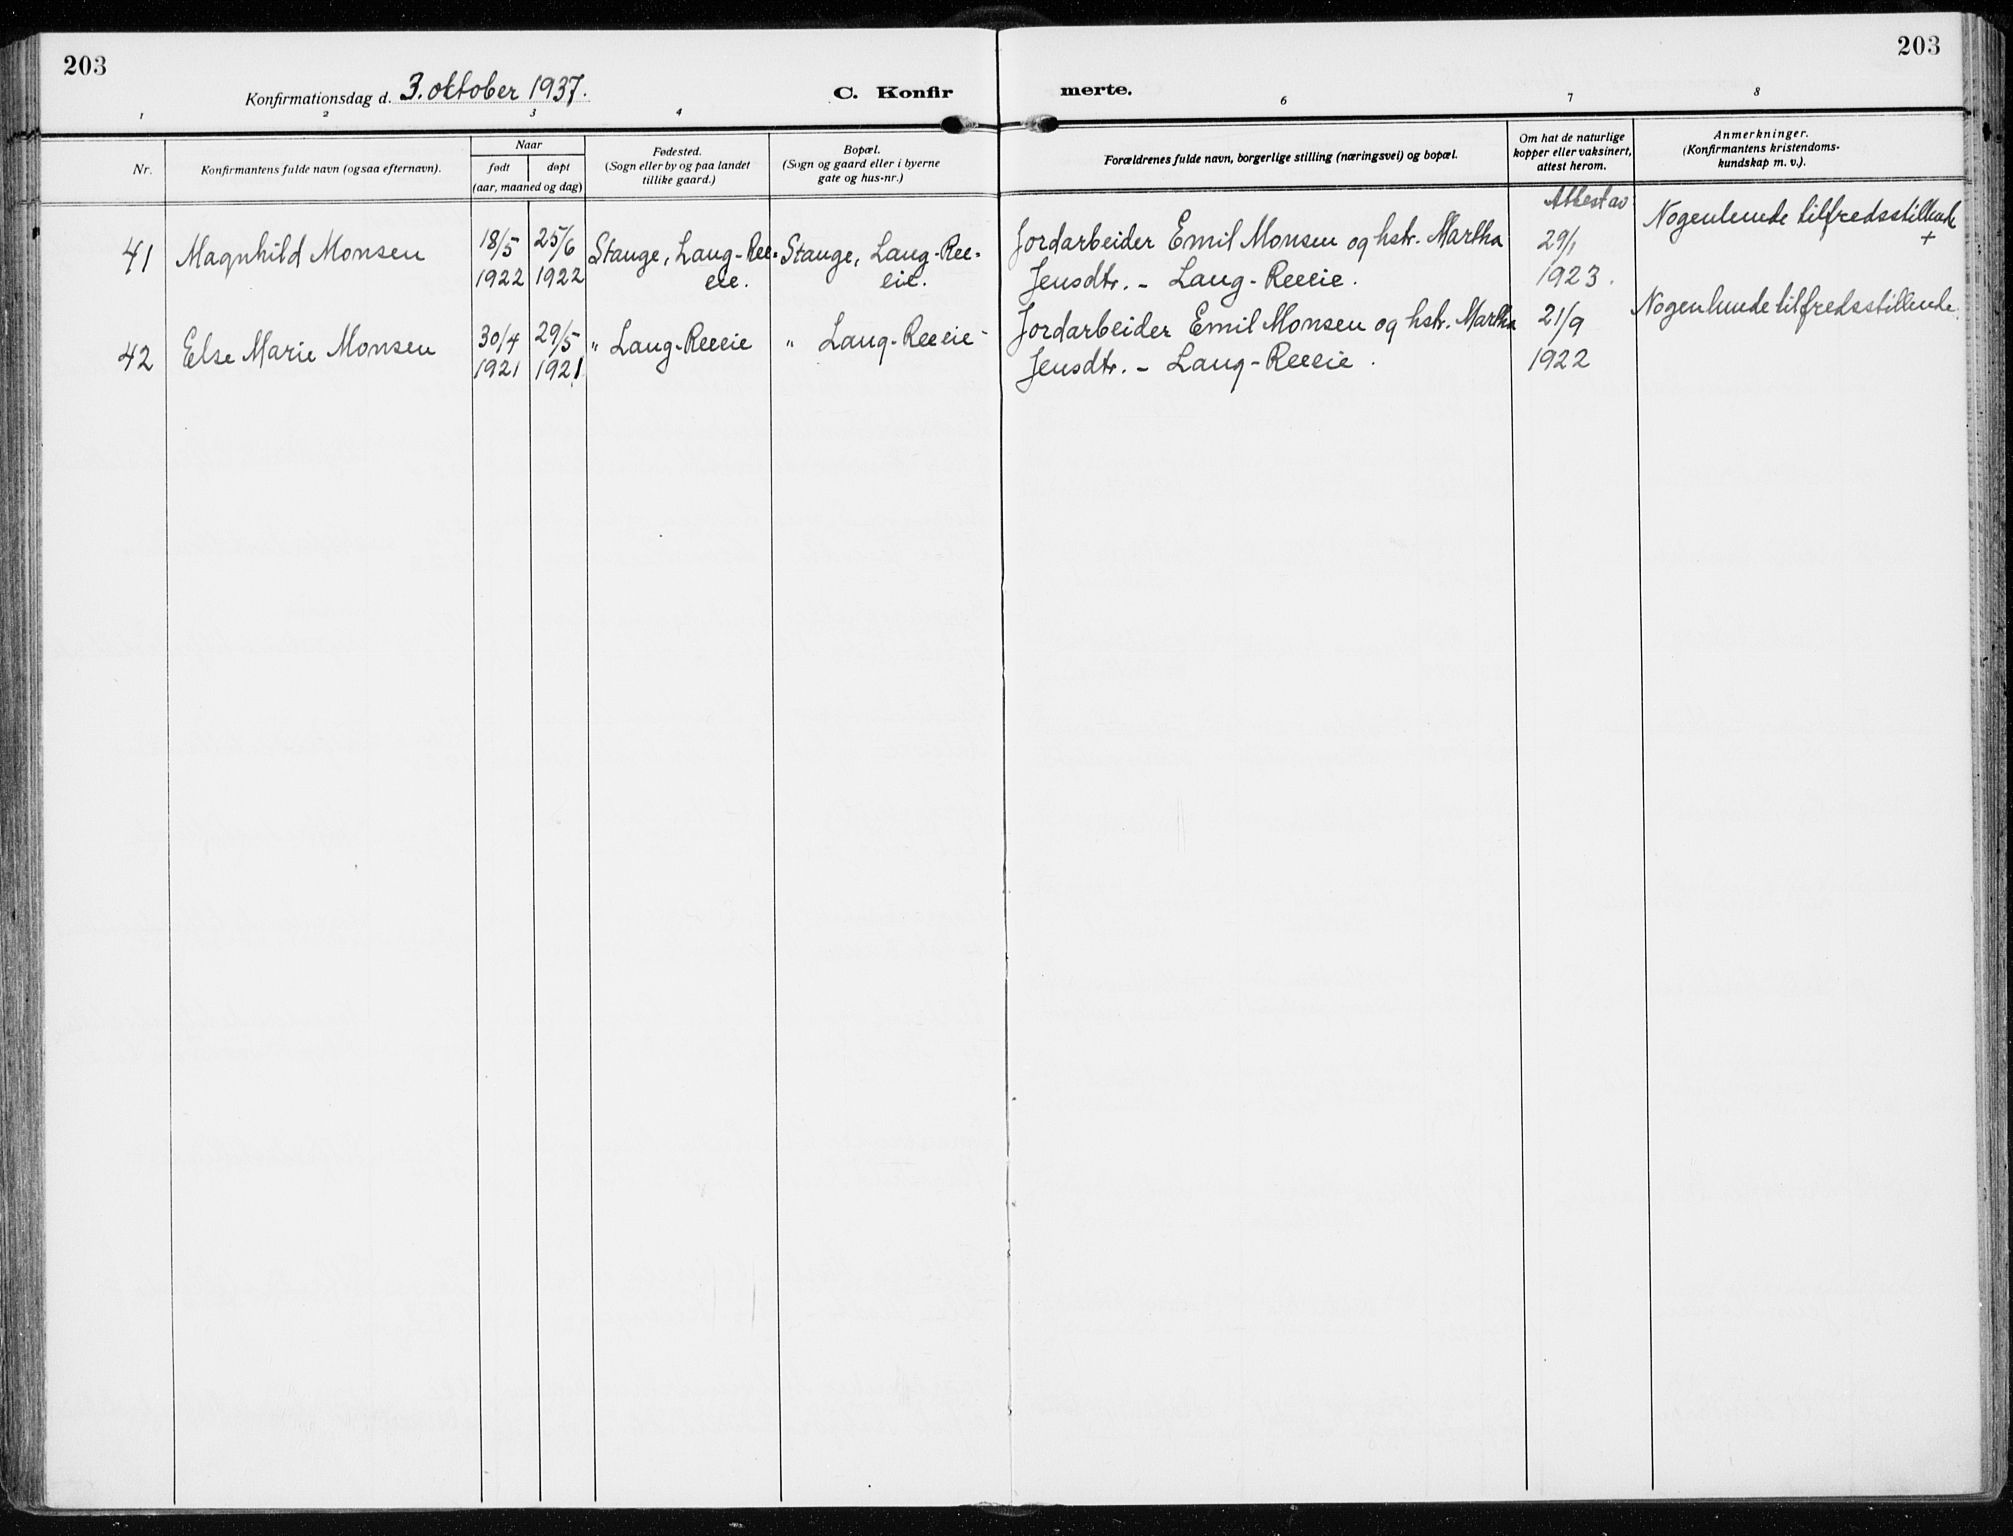 203
203
Konfirmationsdag d. 3. oktober 1937.
C. Konfir merte.
1 2 3 4 6 7 8
Nr.
Konfirmantens fulde navn (ogsaa efternavn).
Naar
født døpt
(aar, maaned og dag)
Fødested.
(Sogn eller by og paa landet
tillike gaard.)
Bopæl.
(Sogn og gaard eller i byerne
gate og hus-nr.)
Forældrenes fulde navn, borgerlige stilling (næringsvei) og bopæl.
Om hat de naturlige
kopper eller vaksinert,
attest herom.
Anmerkninger.
(Konfirmantens kristendoms-
kundskap m. v.).
Attest av
41 Magnhild Monsen 18/5 25/6 Stange, Lang-Ree- Stange, Lang-Ree- Jordarbeider Emil Monsen og hstr. Martha 29/1 Nogenlunde tilfredsstillende +
1922 1922 eie. eie. Jensdtr. - Lang-Reeeie. 1923.
42 Else Marie Monsen 30/4 29/5 " Lang-Reeeie " Lang-Reeeie - Jordarbeider Emil Monsen og hstr. Martha 21/9 Nogenlunde tilfredsstillende.
1921 1921 Jensdtr. - Lang-Reeeie. 1922